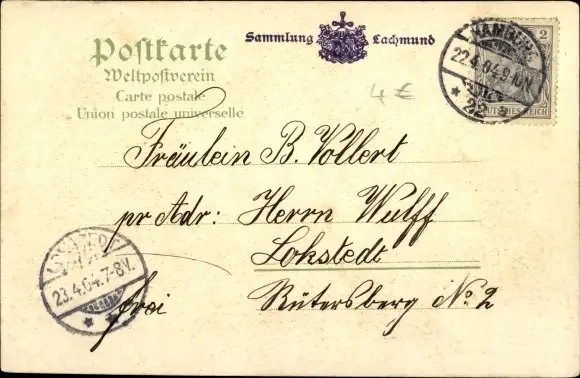 Postkarte
Weltpostverein
Carte postale
Union postale universelle
Sammlung Lachmund
4 €
HAMBURG
22.4.04.9-10N.
* 22 *
2
DEUTSCHES REICH
Fräulein B. Vollert
pr Adr: Herrn Wulff
Lokstedt
frei Rütersberg No. 2
LOKSTEDT
23.4.04.7-8V.